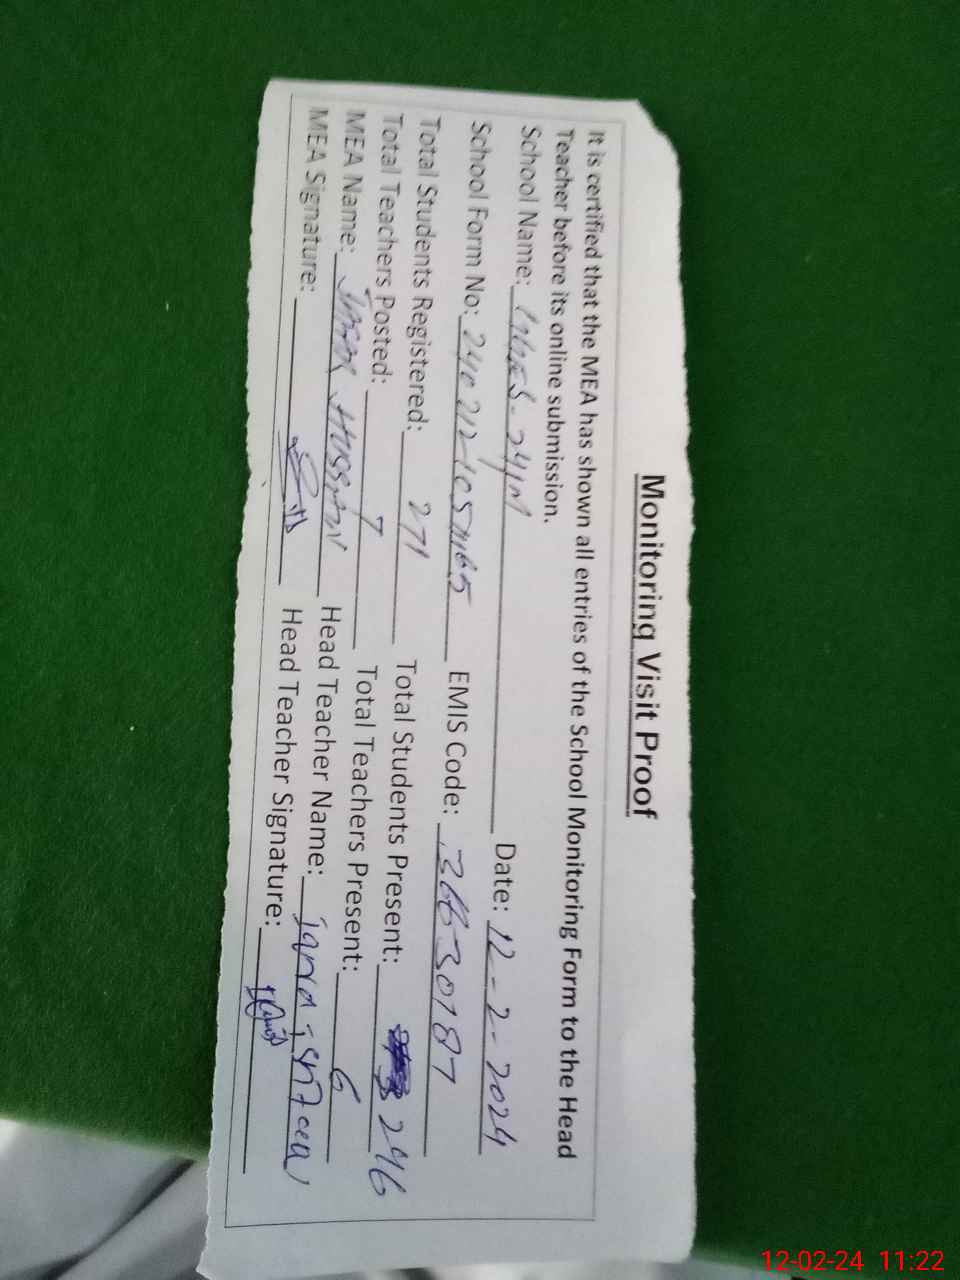 Monitoring Visit Proof
It is certified that the MEA has shown all entries of the School Monitoring Form to the Head
Teacher before its online submission.
School Name: Date: 12-2-2024
School Form No: EMIS Code: 36630187
Total Students Registered: 271 Total Students Present: 246
Total Teachers Posted: 7 Total Teachers Present: 6
MEA Name: HUSSAIN Head Teacher Name:
MEA Signature: Head Teacher Signature:
12-02-24 11:22